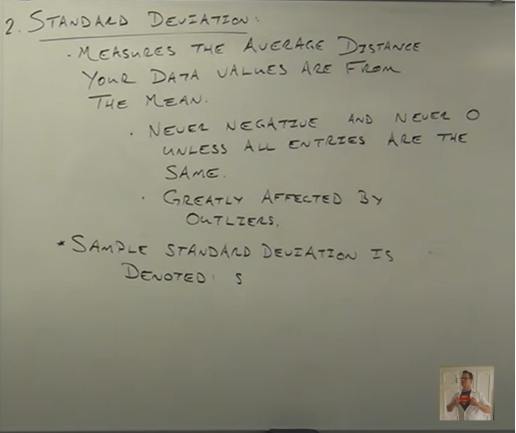 2. STANDARD DEVIATION:
· MEASURES THE AVERAGE DISTANCE
YOUR DATA VALUES ARE FROM
THE MEAN.
· NEVER NEGATIVE AND NEVER 0
UNLESS ALL ENTRIES ARE THE
SAME.
· GREATLY AFFECTED BY
OUTLIERS.
* SAMPLE STANDARD DEVIATION IS
DENOTED: S